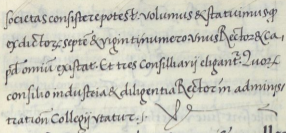 societas consistere potest. Volumus & statuimus q
ex dictor septē & viginti numero. Vnus Rector & Ca,
pd omiū existat. Et tres Consilliarij eligant.' Quor
consilio industria & diligentia Rector in adminis
tration Collegij vtatur.